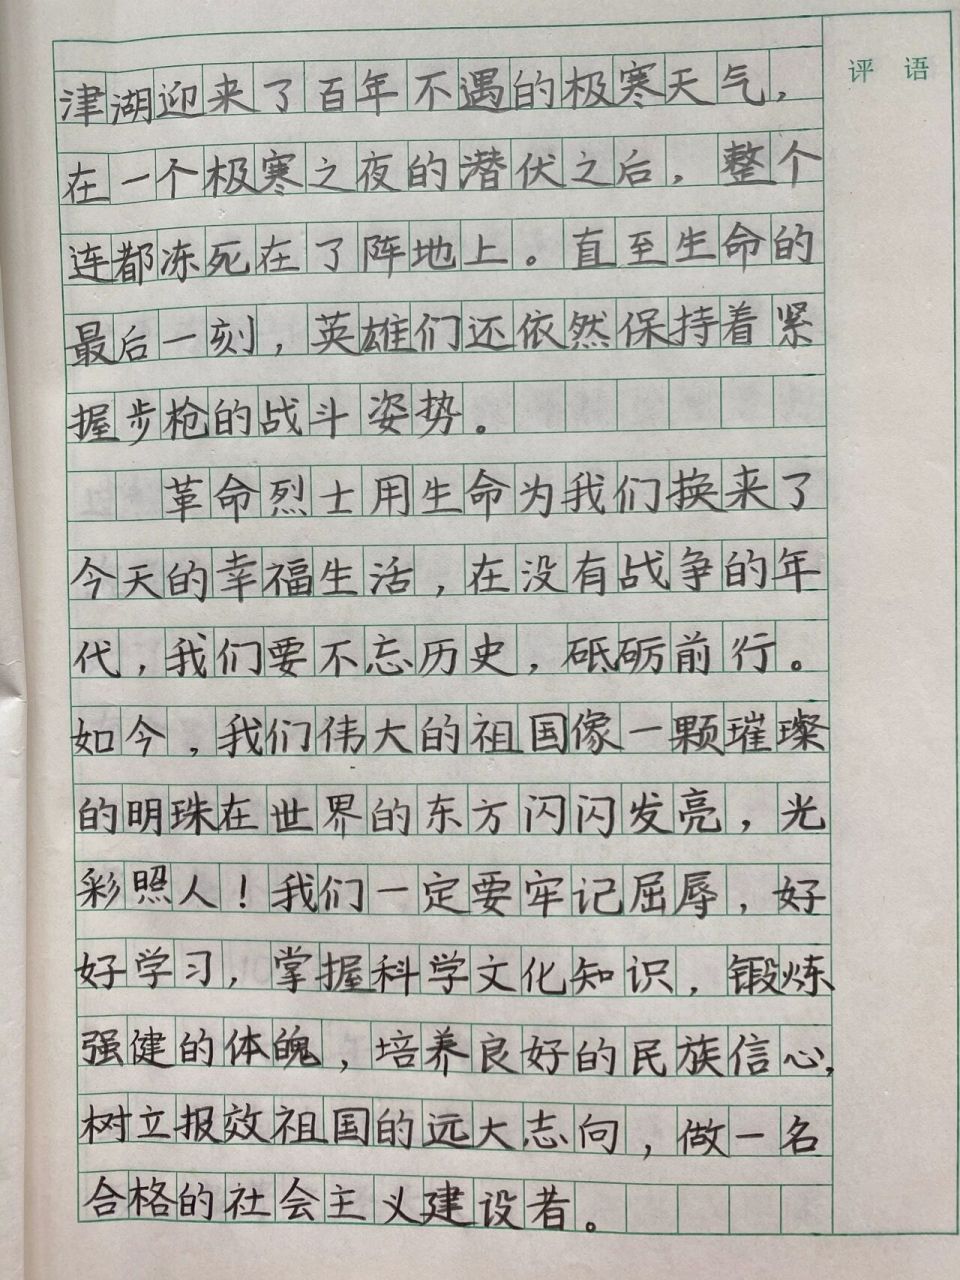 评 语
津湖迎来了百年不遇的极寒天气，
在一个极寒之夜的潜伏之后，整个
连都冻死在了阵地上。直至生命的
最后一刻，英雄们还依然保持着紧
握步枪的战斗姿势。
革命烈士用生命为我们换来了
今天的幸福生活，在没有战争的年
代，我们要不忘历史，砥砺前行。
如今，我们伟大的祖国像一颗璀璨
的明珠在世界的东方闪闪发亮，光
彩照人！我们一定要牢记屈辱，好
好学习，掌握科学文化知识，锻炼
强健的体魄，培养良好的民族信心，
树立报效祖国的远大志向，做一名
合格的社会主义建设者。